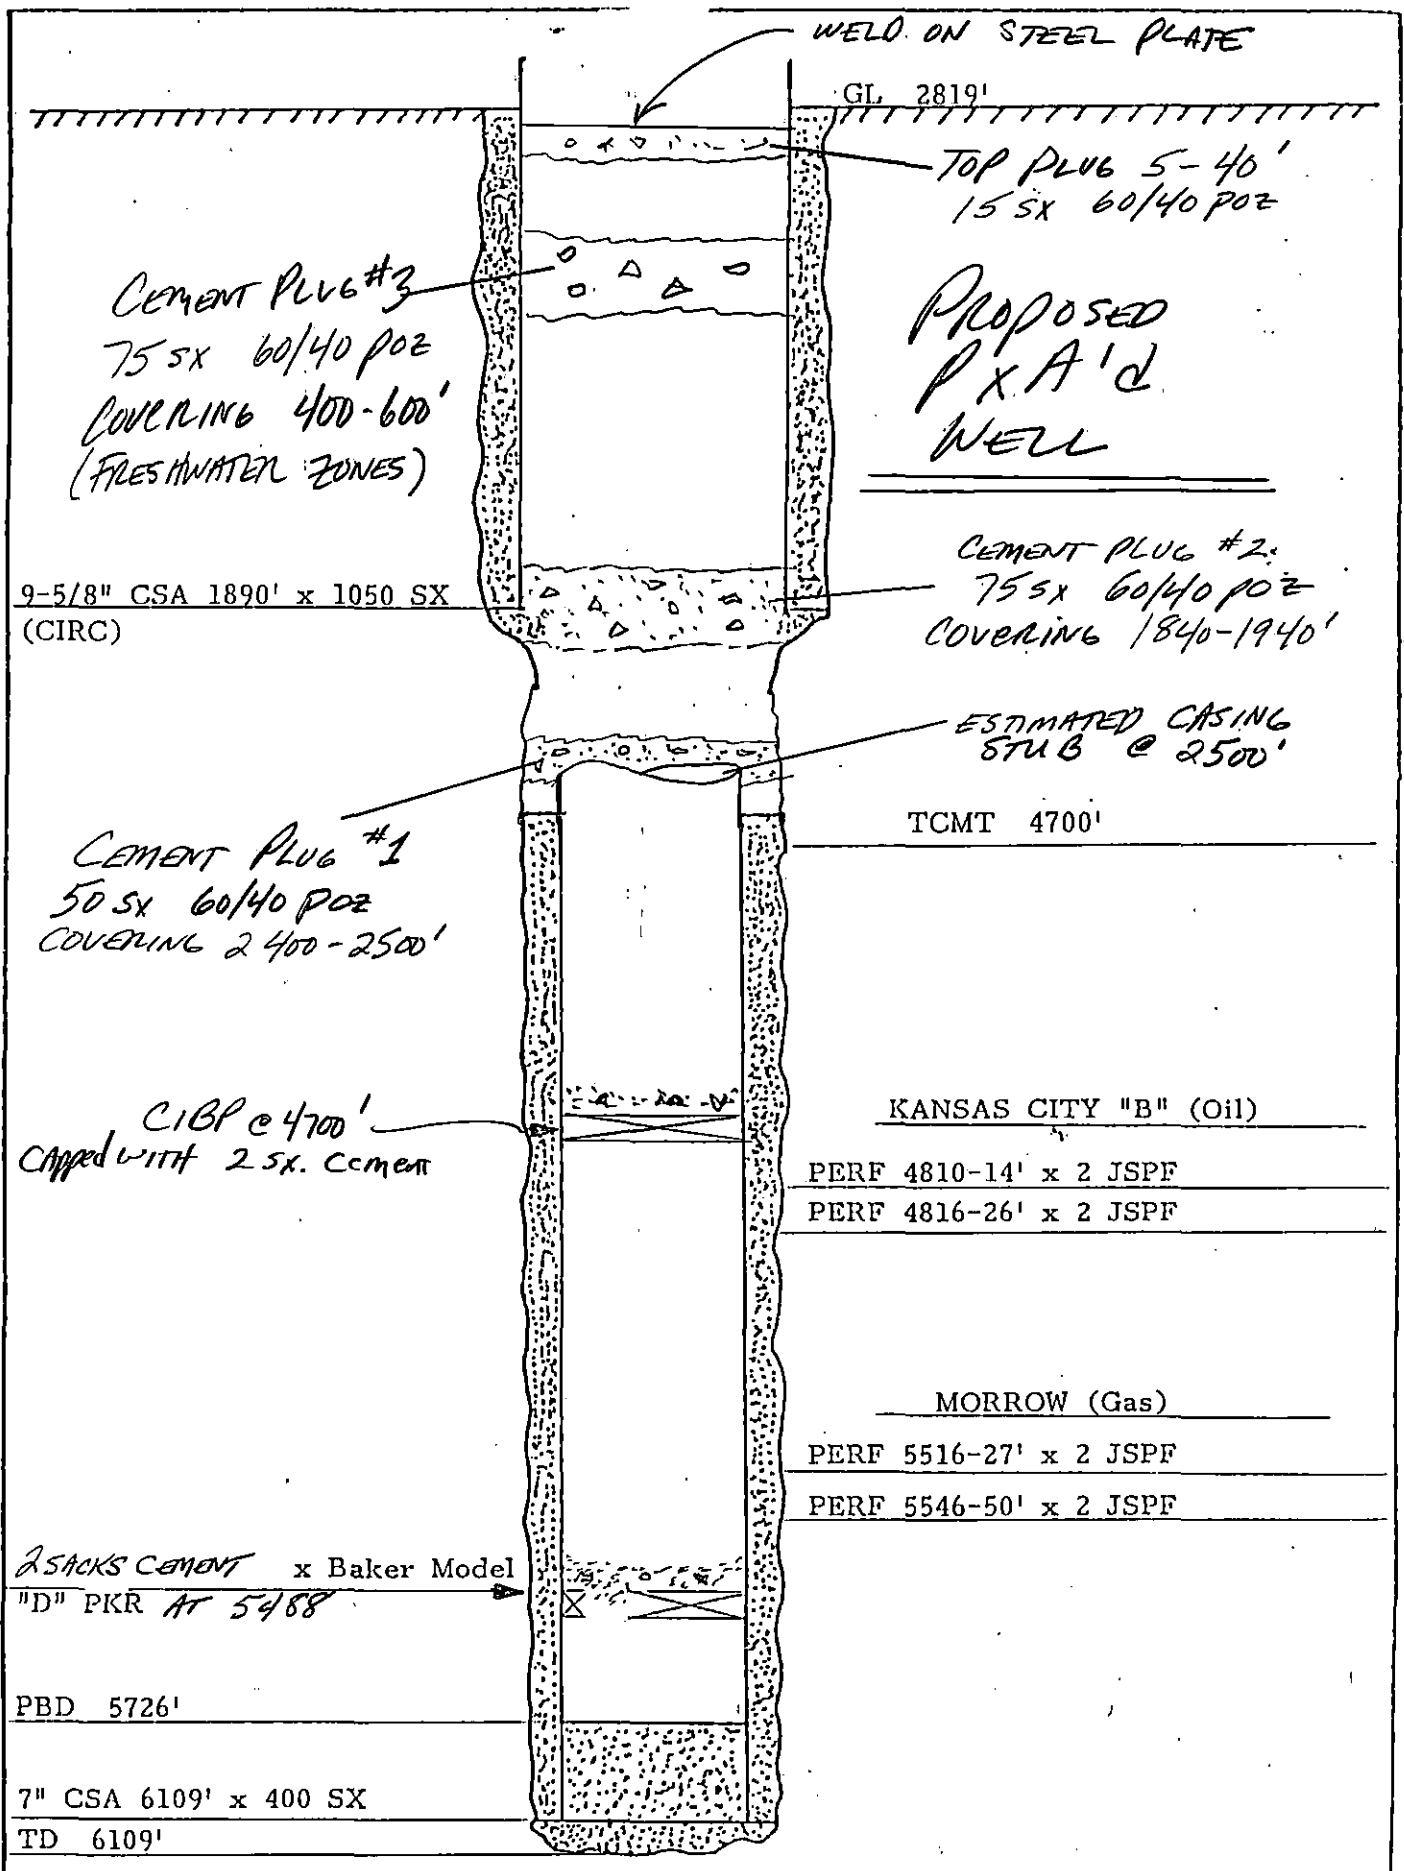 WELD ON STEEL PLATE
GL 2819'
TOP PLUG 5-40'
15 SX 60/40 POZ
CEMENT PLUG #3
75 SX 60/40 POZ
COVERING 400-600'
(FRESHWATER ZONES)
PROPOSED
P x A'd
WELL
9-5/8" CSA 1890' x 1050 SX
(CIRC)
CEMENT PLUG #2
75 SX 60/40 POZ
COVERING 1840-1940'
ESTIMATED CASING
STUB @ 2500'
TCMT 4700'
CEMENT PLUG #1
50 SX 60/40 POZ
COVERING 2400-2500'
CIBP @ 4700'
CAPPED WITH 2 SX. CEMENT
KANSAS CITY "B" (Oil)
PERF 4810-14' x 2 JSPF
PERF 4816-26' x 2 JSPF
MORROW (Gas)
PERF 5516-27' x 2 JSPF
PERF 5546-50' x 2 JSPF
2 SACKS CEMENT x Baker Model
"D" PKR AT 5488'
PBD 5726'
7" CSA 6109' x 400 SX
TD 6109'